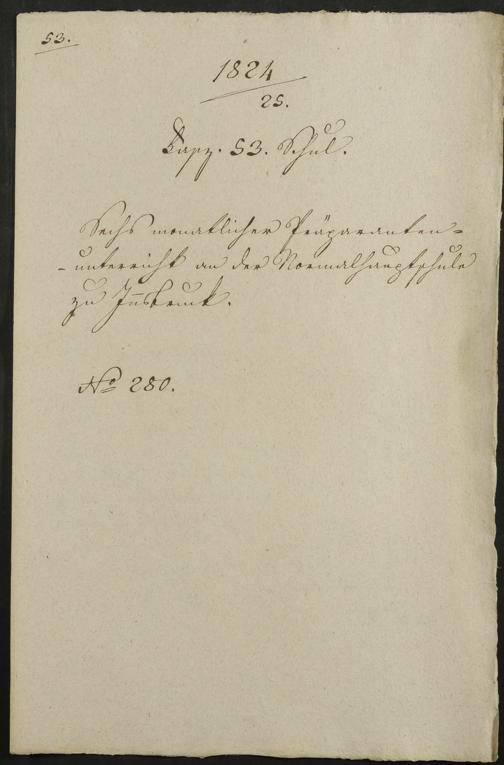 53.
1824
25.
Fasz. 53. Schul.
Sechs monatlicher Präparanten-
-unterricht an der Normalhauptschule
zu Innsbruck.
No 280.